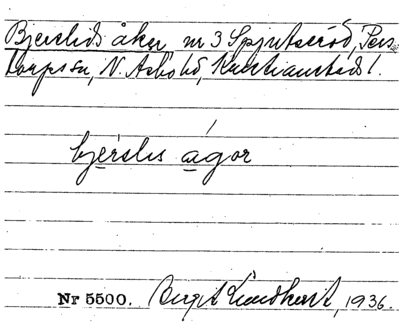 Bjerslids åker nr 3 Spjutseröd, Pers-
torps sn, N. Åsbo hd, Kristianstads l.
bjerslis ågor
Nr 5500. Birgit Lundkvist, 1936.